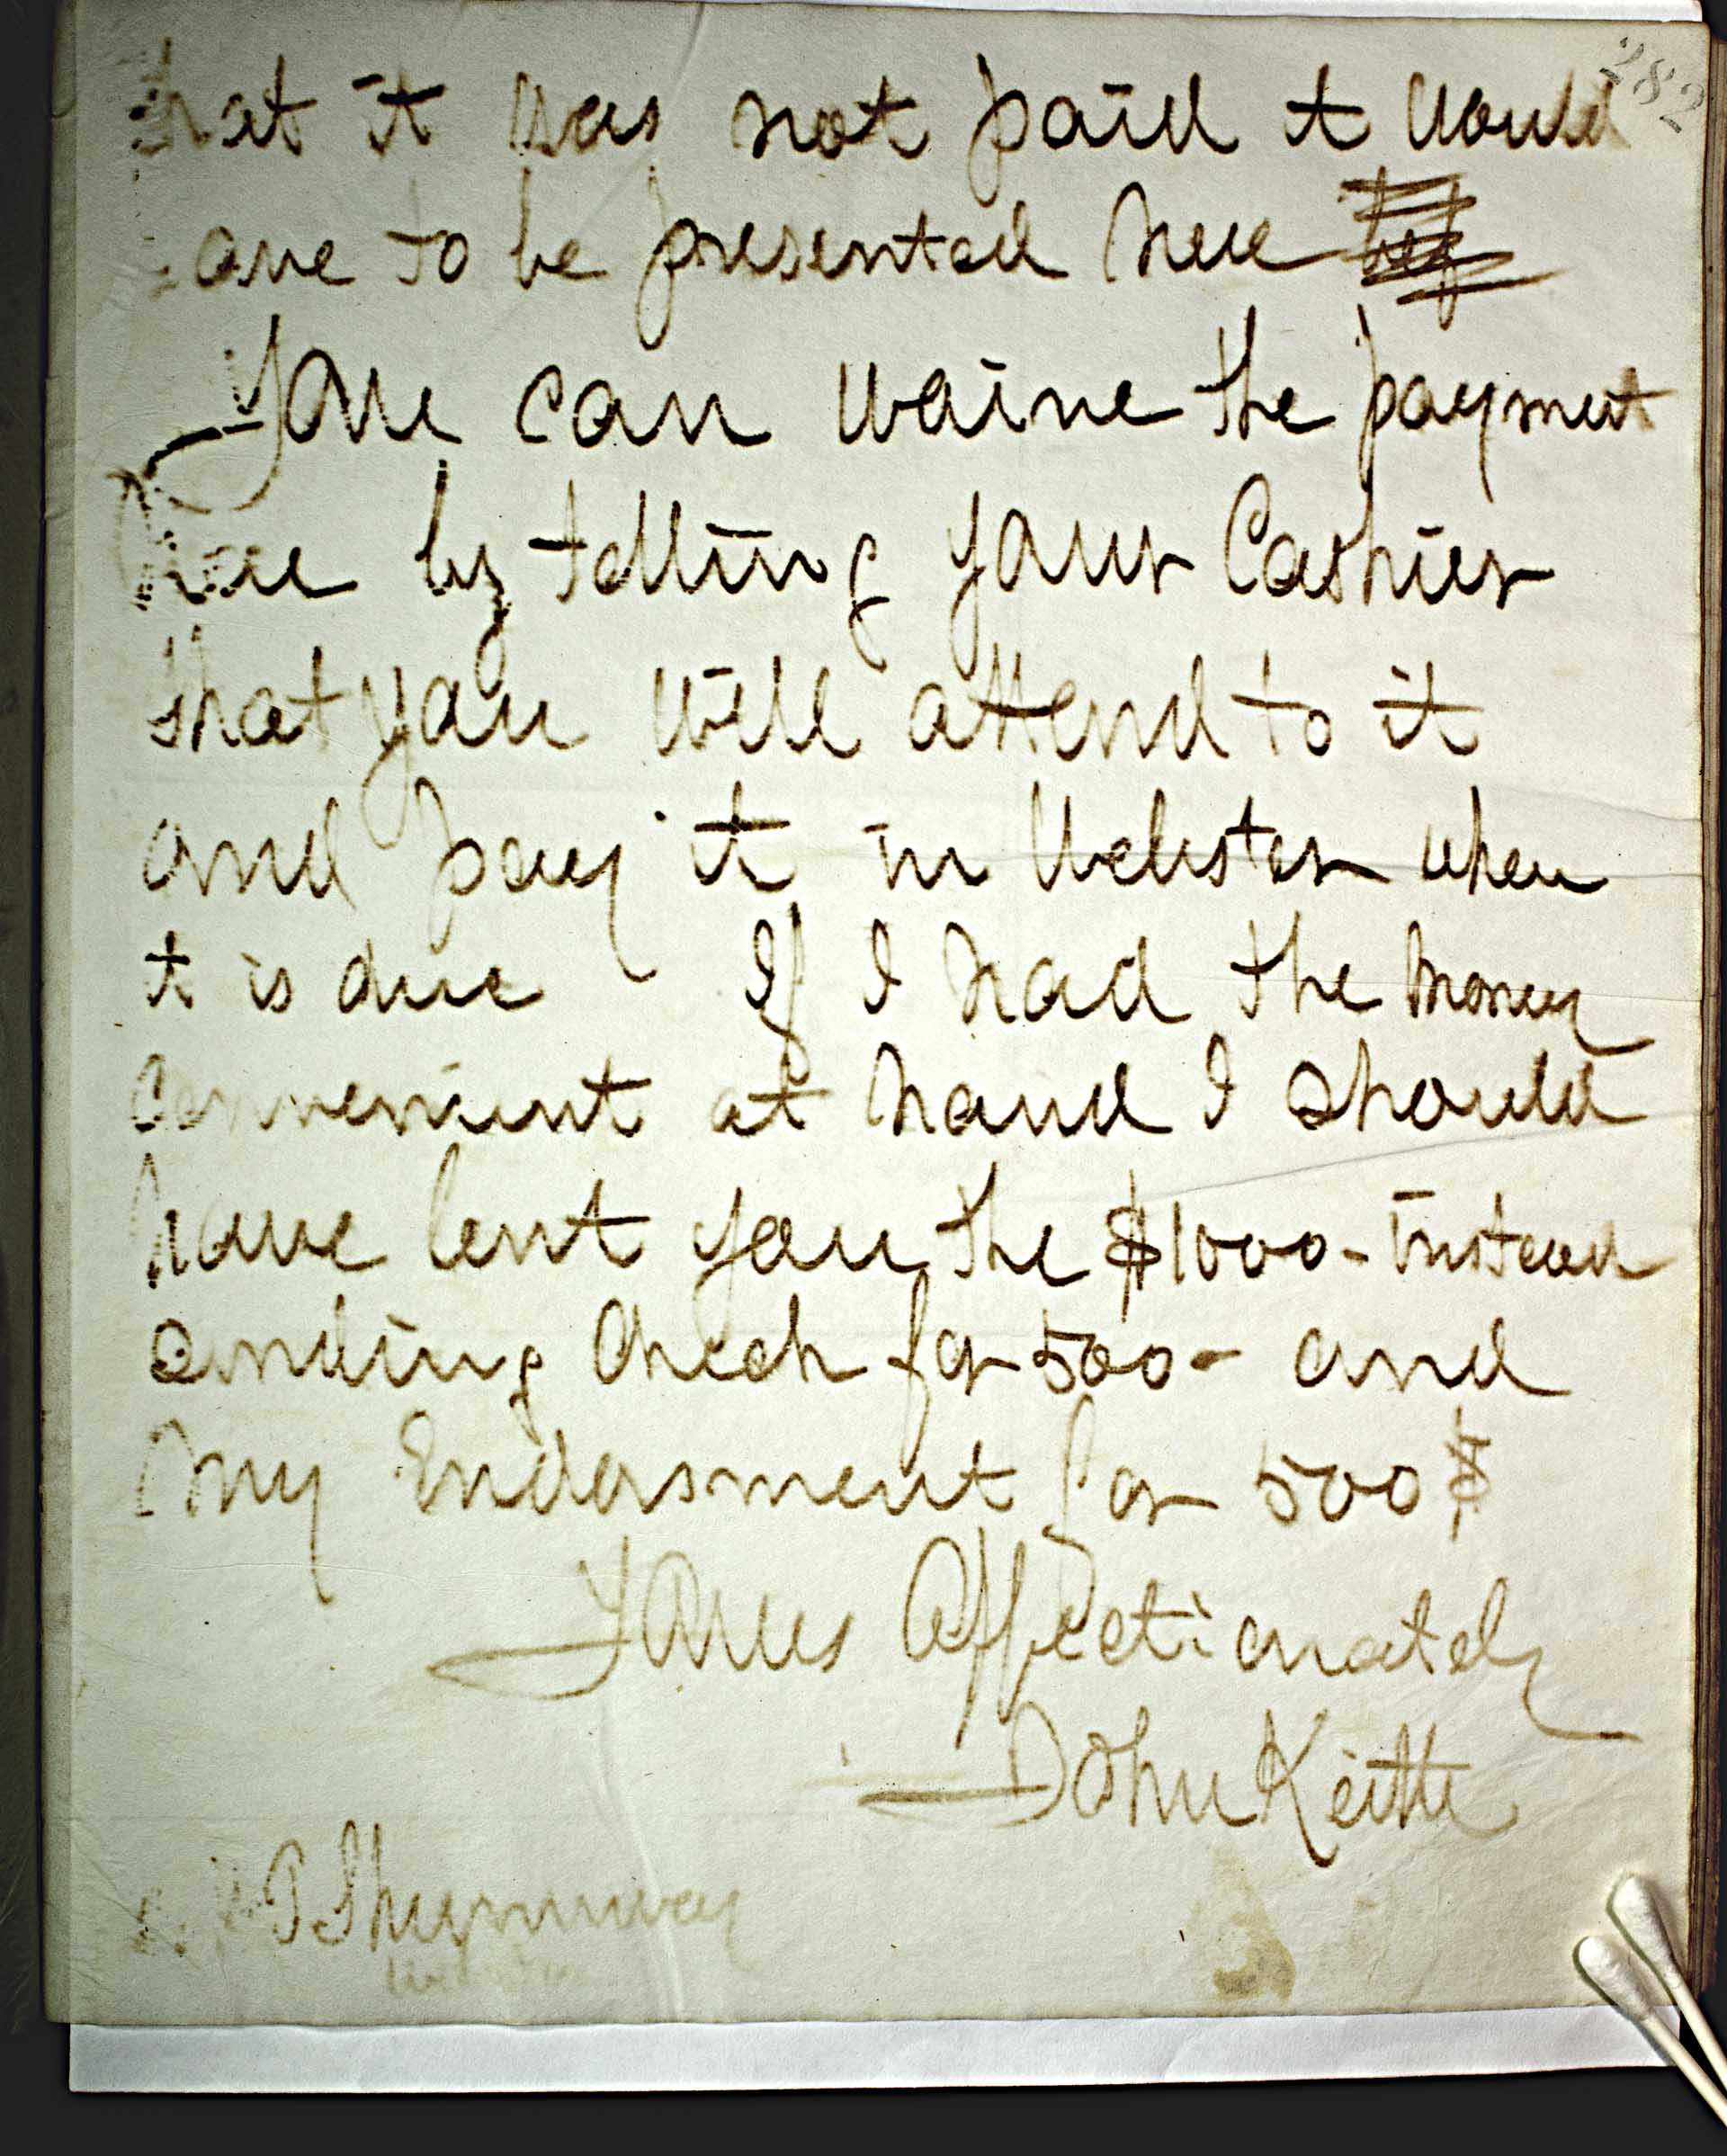 282
that it was not paid it would
have to be presented here
You can waive the payment
here by telling your Cashier
that you will attend to it
and pay it in Webster when
it is due If I had the money
convenient at hand I should
have lent you the $1000- instead
sending Check for 500- and
My Endorsment for 500 $
Yours Affectionately
John Keith
P Shummway